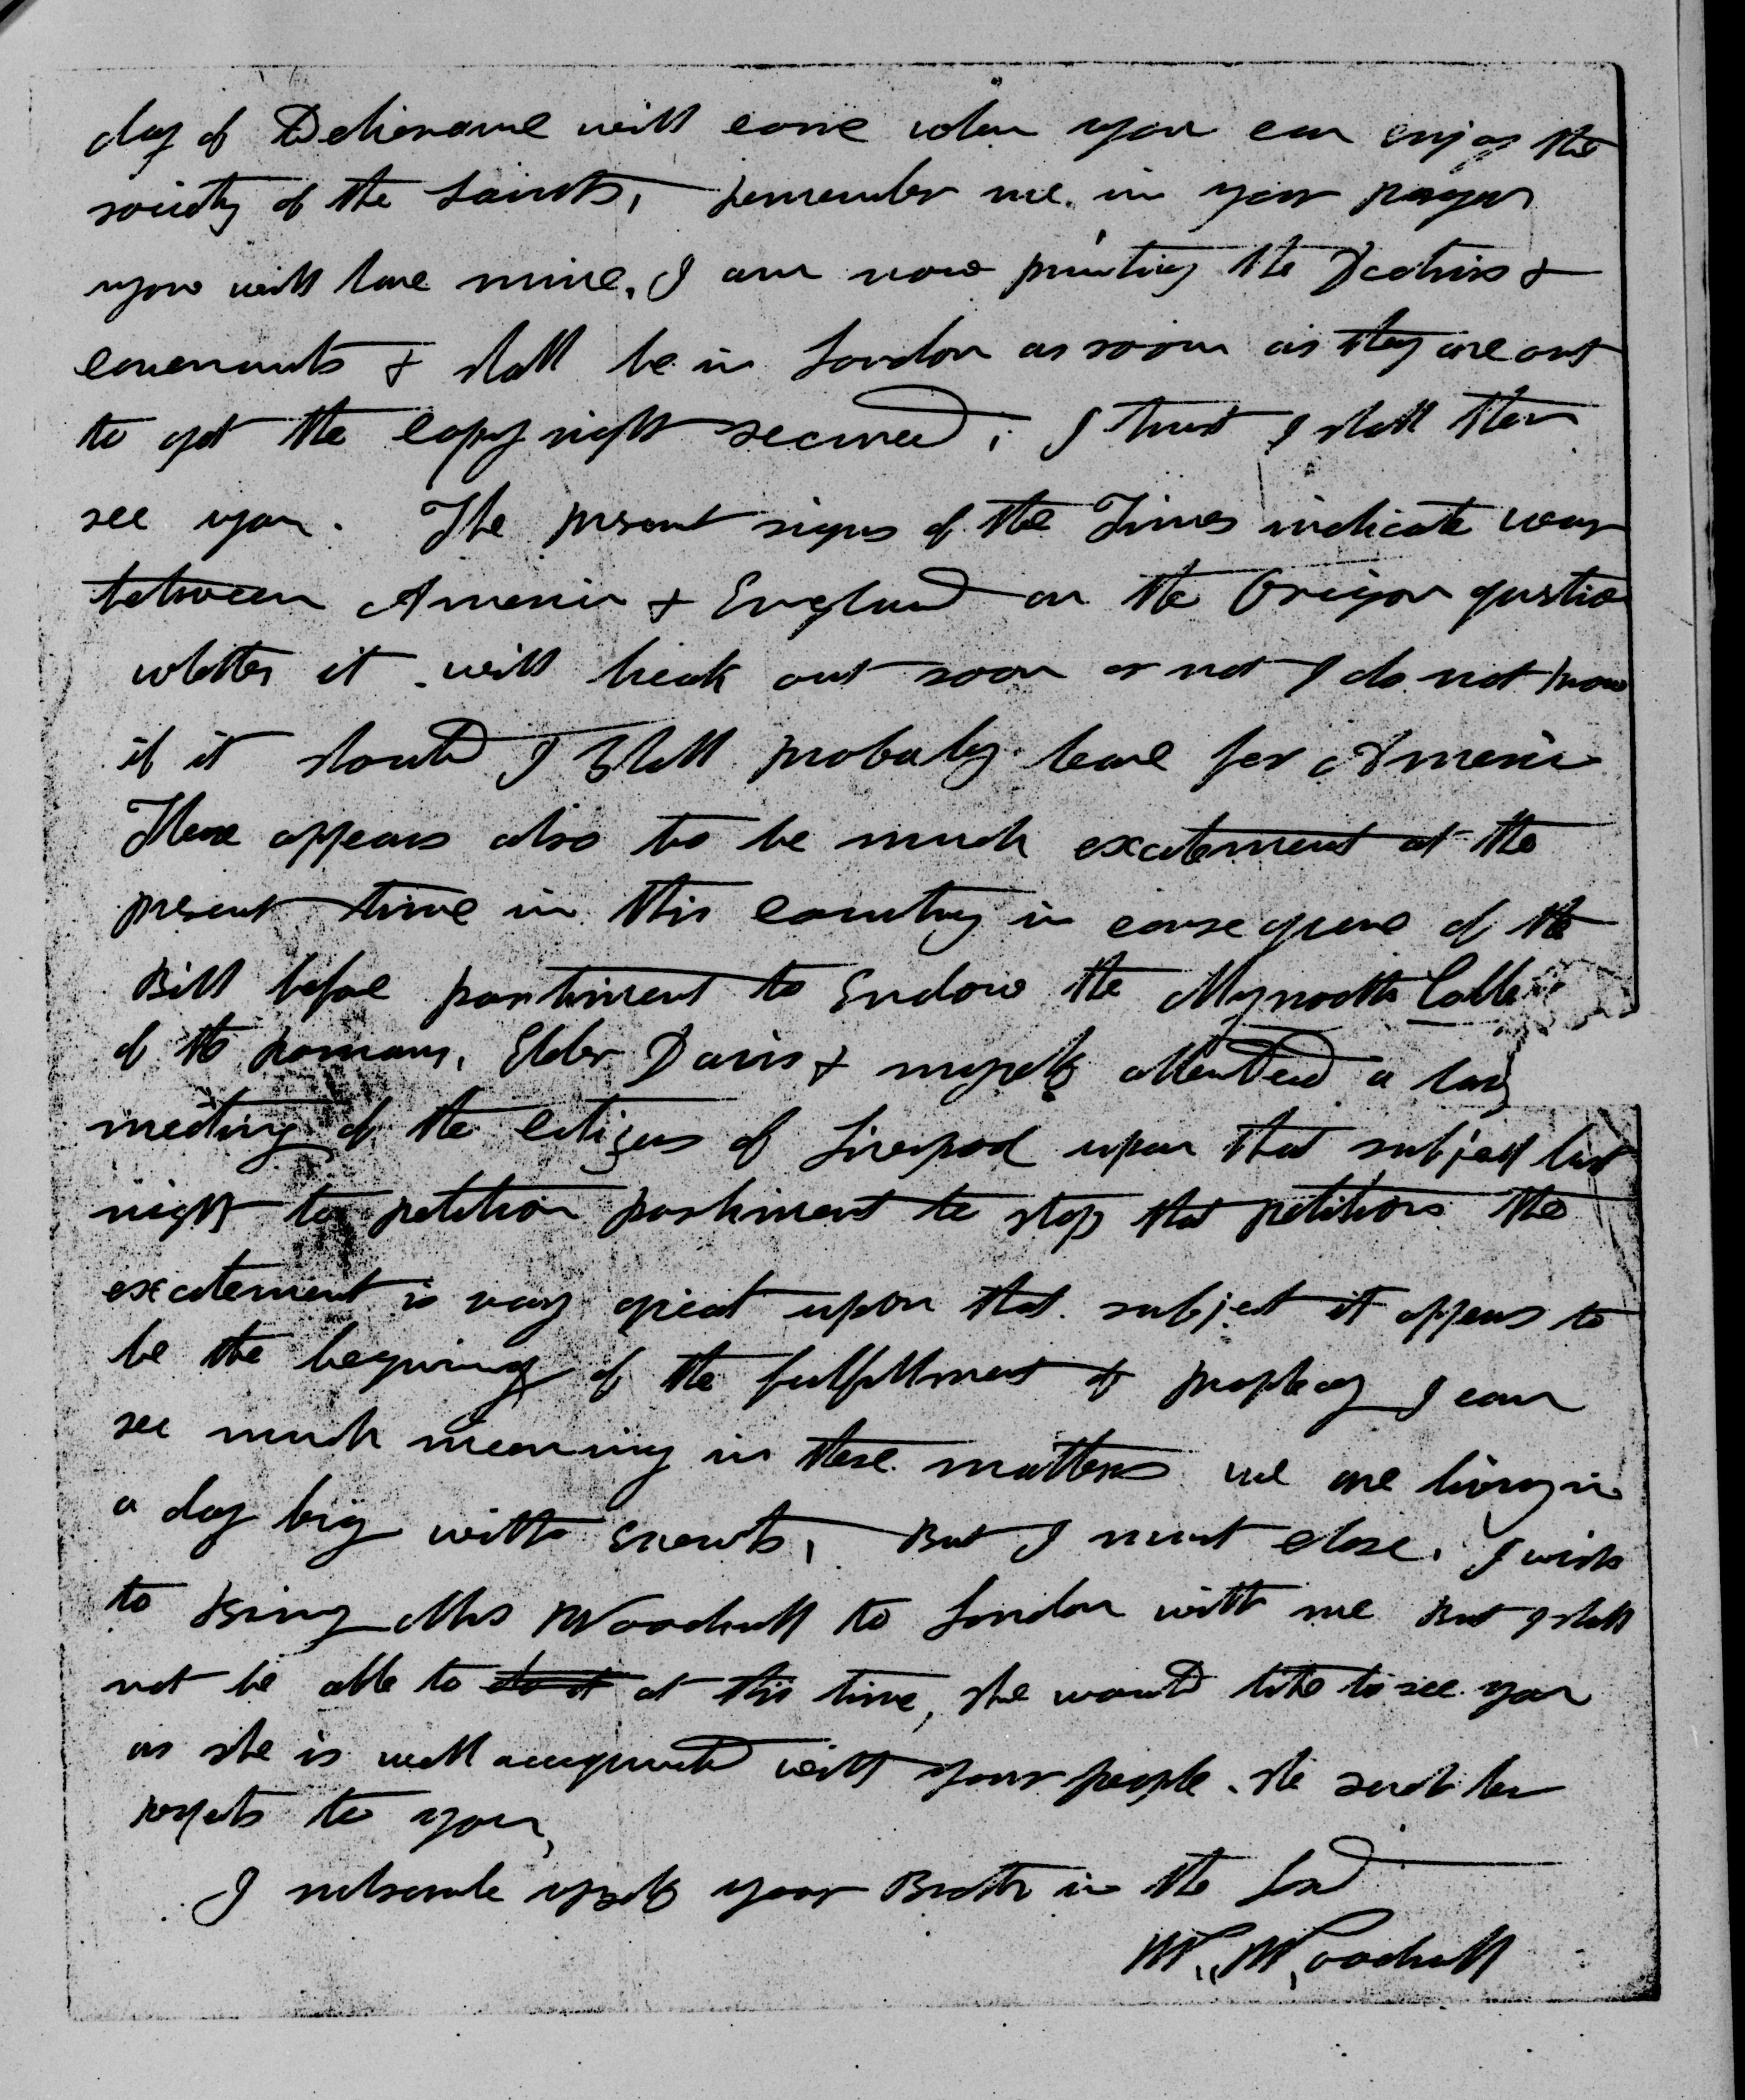 day of Deliverance will come when you can enjoy the
society of the Saints, remember me in your prayers
you will have mine. I am now printing the Doctrins &
covenants & shall be in London as soon as they are out
to get the copy right secured, I trust I shall then
see you. The present signs of the Times indicate war
between America & England on the Origon question
whether it will break out soon or not I do not know
if it should I shall probably leave for America
There appears also to be much excitement at the
present time in this country in consequence of the
Bill before parliment to Endow the Maynooth Colle
of the Romans, Elder Davis & myself attended a large
meeting of the citizens of Liverpool upon that subject last
night to petition parliment to stop that petitions the
excitement is very great upon that subject it appears to
be the begining of the fulfillment of prophecy I can
see much meaning in these matters we are living in
a day big with Events, But I must close. I wish
to Bring Mrs Woodruff to London with me But I shall
not be able to do it at this time, she would like to see you
as she is well acquainted with your people. she sends her
respects to you,
I subscribe myself your Brother in the Lord
W. Woodruff